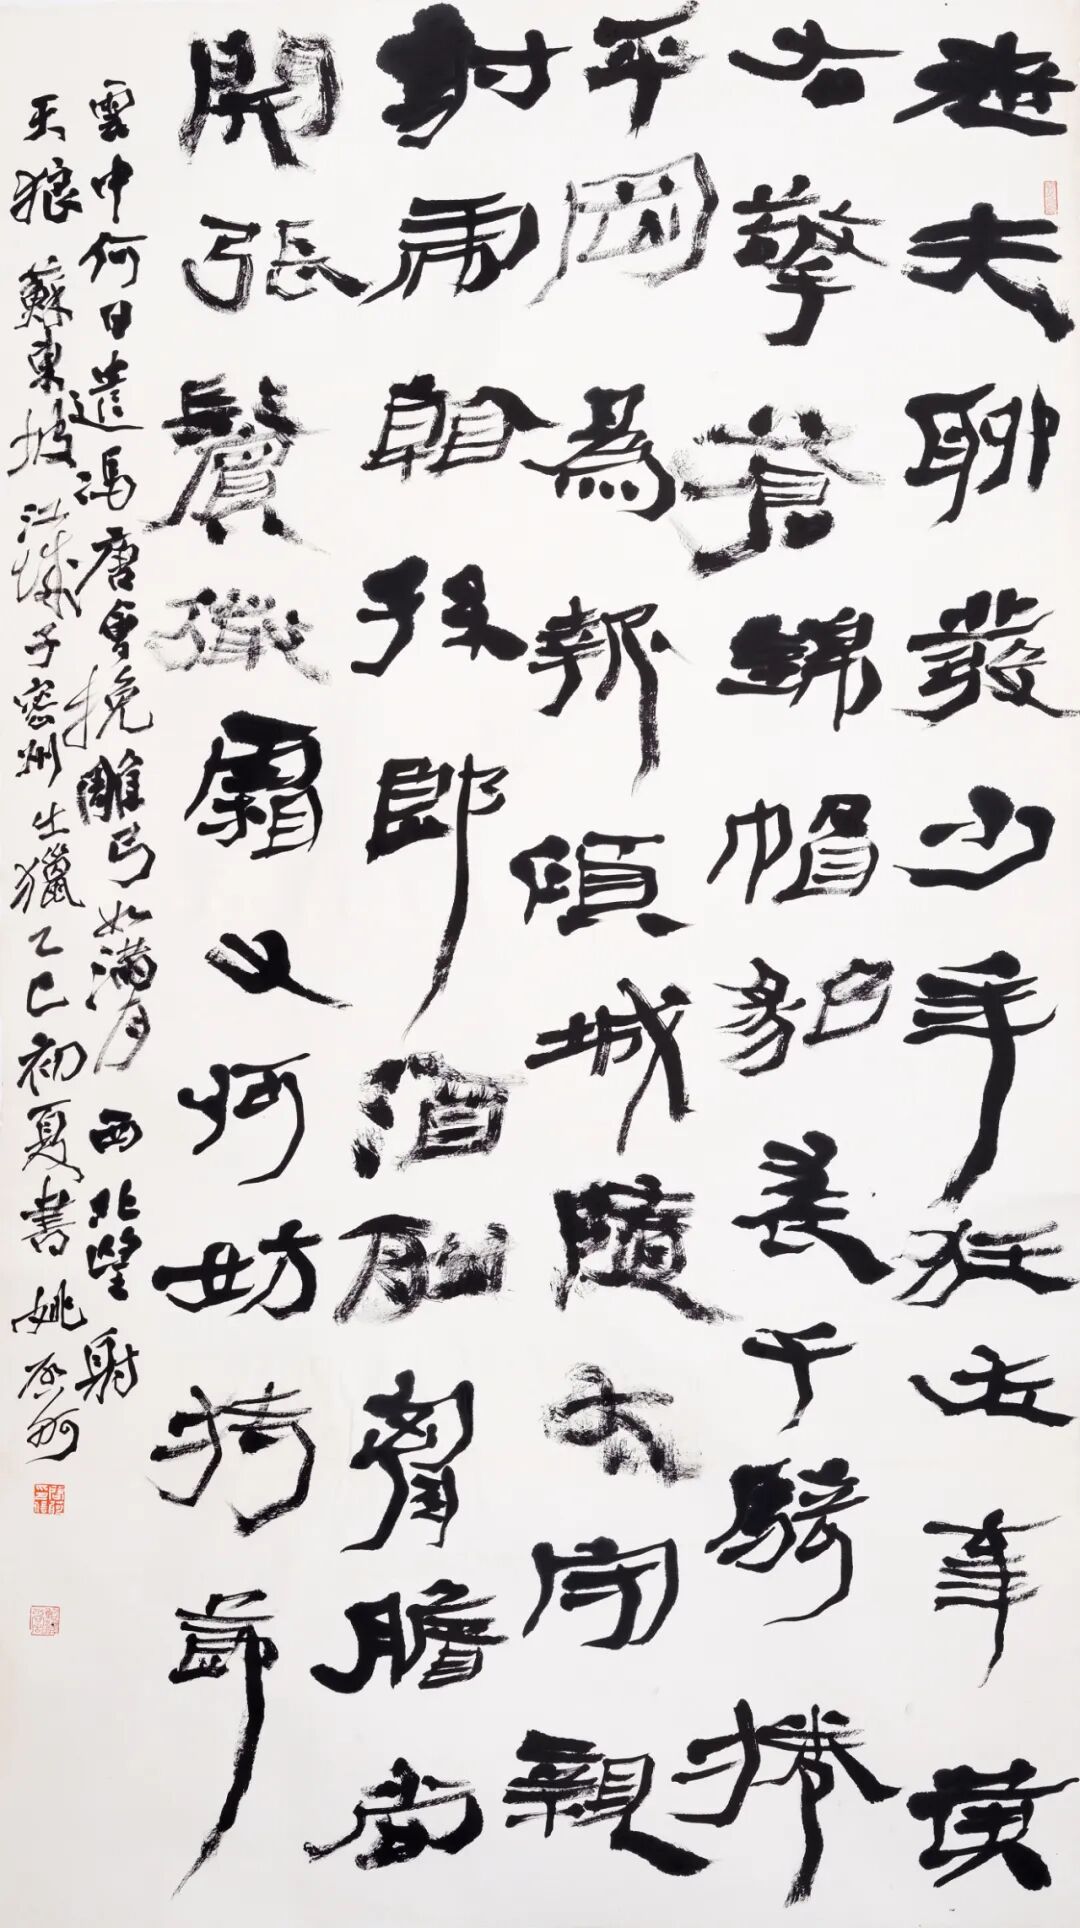 老夫聊發少年狂左牽黃
右擎蒼錦帽貂裘千騎捲
平岡為報傾城隨太守親
射虎看孫郎酒酣胸膽尚
開張鬢微霜又何妨持節
雲中何日遣馮唐會挽雕弓如滿月西北望射
天狼 蘇東坡江城子密州出獵乙巳初夏書姚